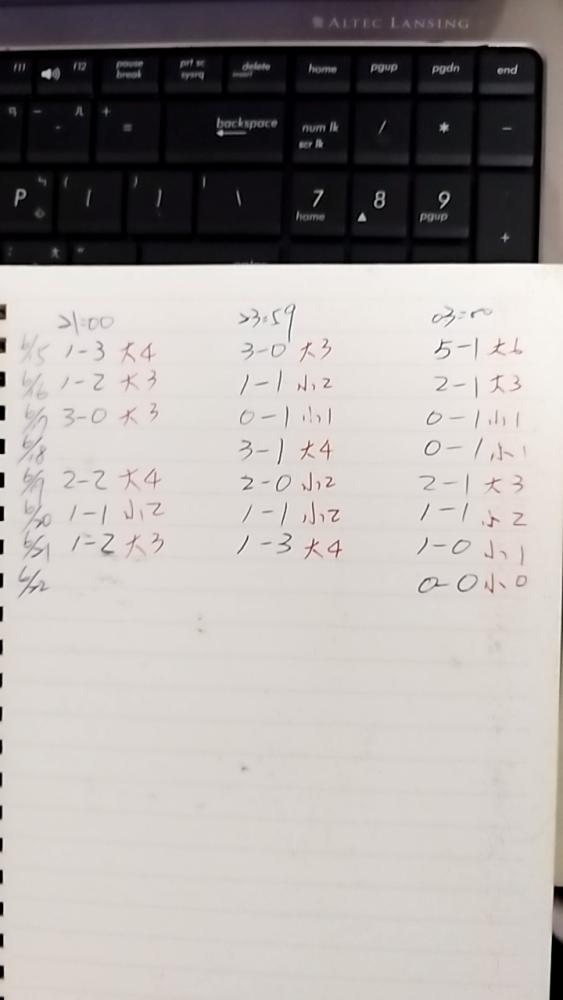 ALTEC LANSING
f11 f12 pause break prt sc sysrq delete insert home pgup pgdn end
- + = backspace num lk scr lk / * -
P [ ] \ 7 home 8 9 pgup +
21=00 23=59 03=00
6/15 1-3 大4 3-0 大3 5-1 大6
6/16 1-2 大3 1-1 小2 2-1 大3
6/17 3-0 大3 0-1 小1 0-1 小1
6/18 3-1 大4 0-1 小1
6/19 2-2 大4 2-0 小2 2-1 大3
6/20 1-1 小2 1-1 小2 1-1 小2
6/21 1-2 大3 1-3 大4 1-0 小1
6/22 0-0 小0